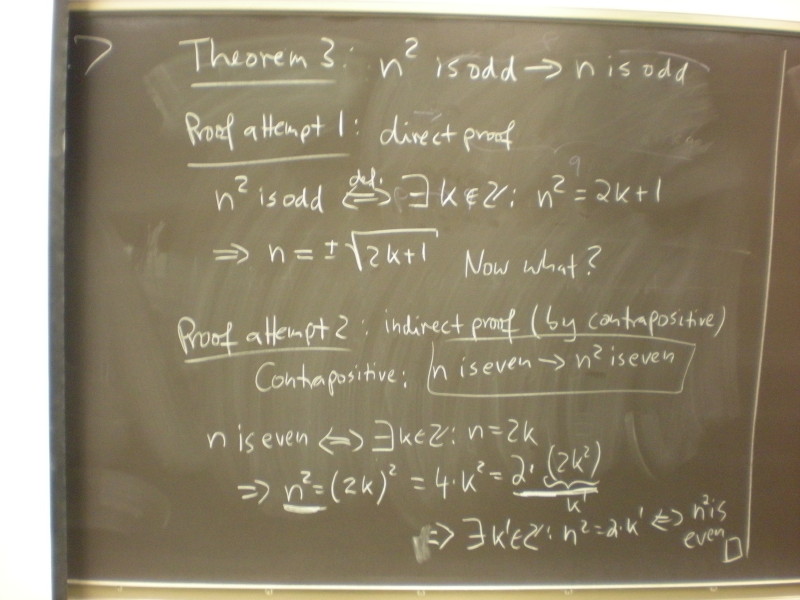 Theorem 3: n² is odd → n is odd
Proof attempt 1: direct proof
n² is odd ⇔ def. ∃ k ∈ ℤ: n² = 2k+1
⇒ n = ±√2k+1 Now what?
Proof attempt 2: indirect proof (by contrapositive)
Contrapositive: n is even → n² is even
n is even ⇔ ∃k∈ℤ: n=2k
⇒ n² = (2k)² = 4·k² = 2·(2k²)
k'
⇒ ∃k'∈ℤ: n²=2·k' ⇔ n² is even □